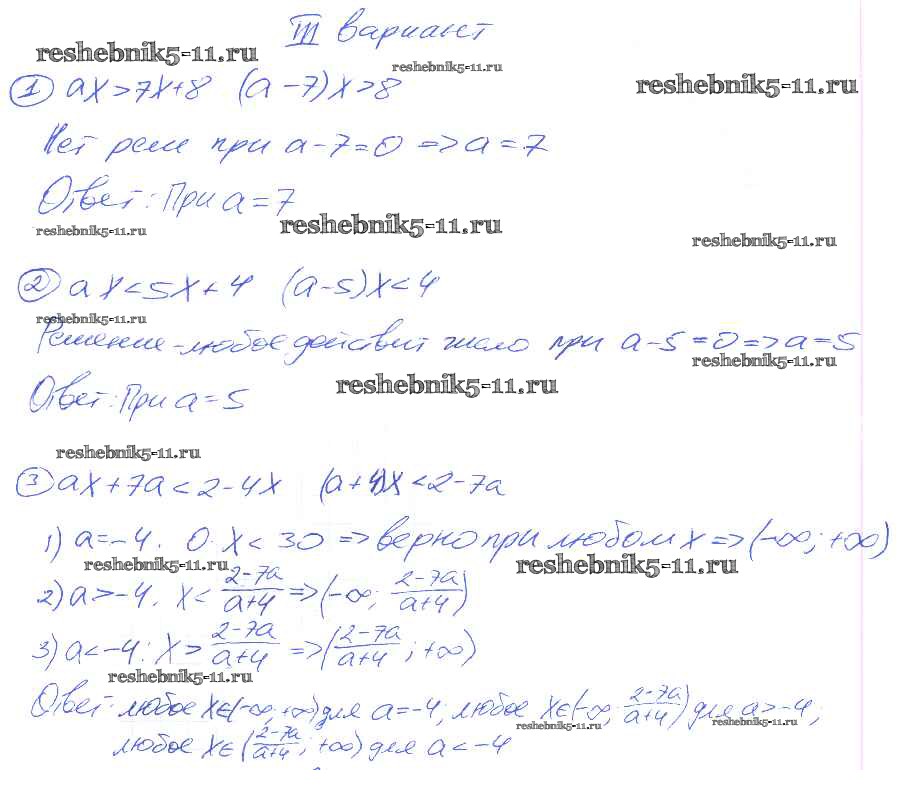 III вариант
reshebnik5-11.ru
reshebnik5-11.ru
① ax>7x+8 (a-7)x>8
reshebnik5-11.ru
Нет реш при a-7=0 => a=7
Ответ: При a=7
reshebnik5-11.ru
reshebnik5-11.ru
reshebnik5-11.ru
② ax<5x+4 (a-5)x<4
reshebnik5-11.ru
Решение - любое действит число при a-5=0 => a=5
reshebnik5-11.ru
reshebnik5-11.ru
Ответ: При a=5
reshebnik5-11.ru
③ ax+7a<2-4x (a+4)x<2-7a
1) a=-4. 0·x<30 => верно при любом x => (-∞; +∞)
reshebnik5-11.ru
reshebnik5-11.ru
2) a>-4. x< (2-7a)/(a+4) => (-∞; (2-7a)/(a+4))
3) a<-4: x> (2-7a)/(a+4) => ((2-7a)/(a+4); +∞)
reshebnik5-11.ru
Ответ: любое x∈(-∞; +∞) для a=-4; любое x∈(-∞; (2-7a)/(a+4)) для a>-4;
reshebnik5-11.ru
reshebnik5-11.ru
любое x∈((2-7a)/(a+4); +∞) для a<-4